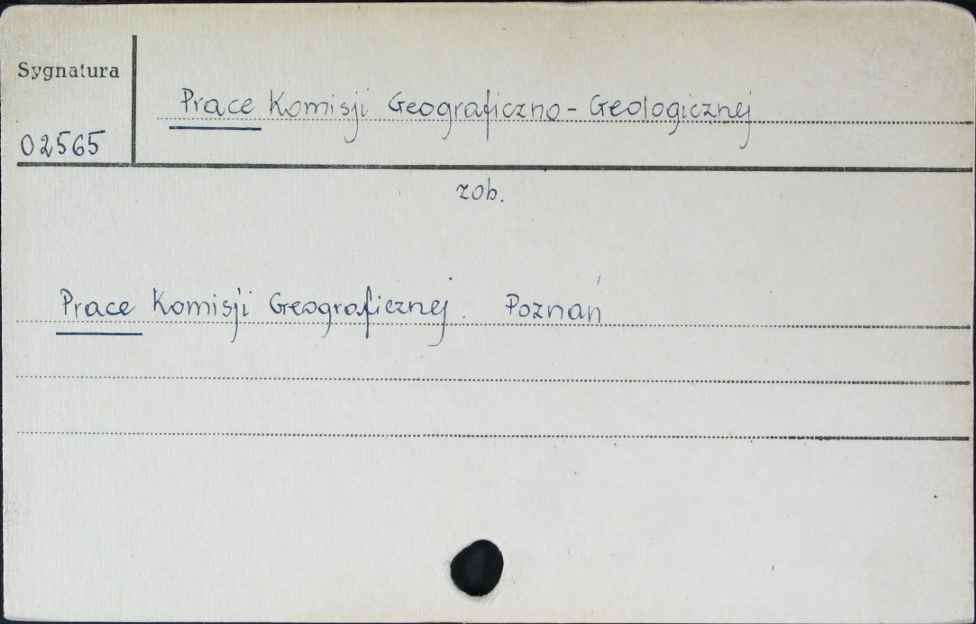 Sygnatura
Prace Komisji Geograficzno-Geologicznej
02565
zob.
Prace Komisji Geograficznej. Poznań